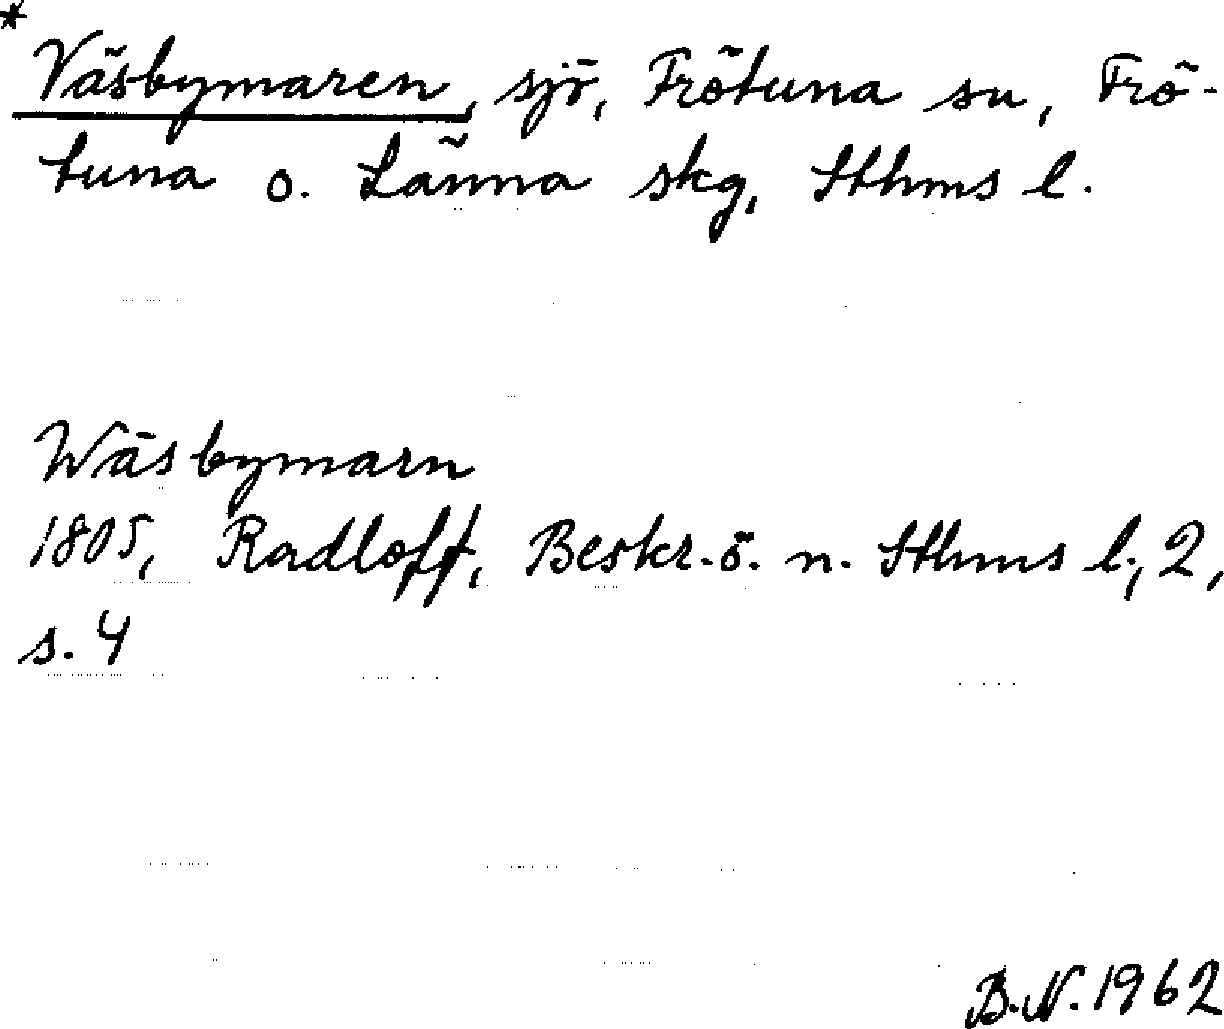 *
Väsbymaren, sjö, Frötuna sn, Frö-
tuna o. Länna skg, Sthms l.
Wäsbymarn
1805, Radloff, Beskr. ö. n. Sthms l., 2,
s. 4
B.N. 1962